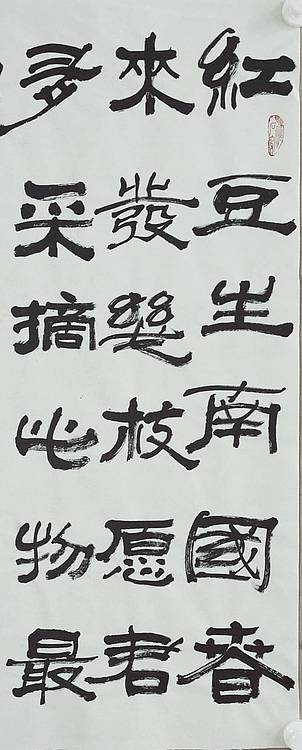 紅豆生南國春
來發幾枝愿君
多采摘此物最